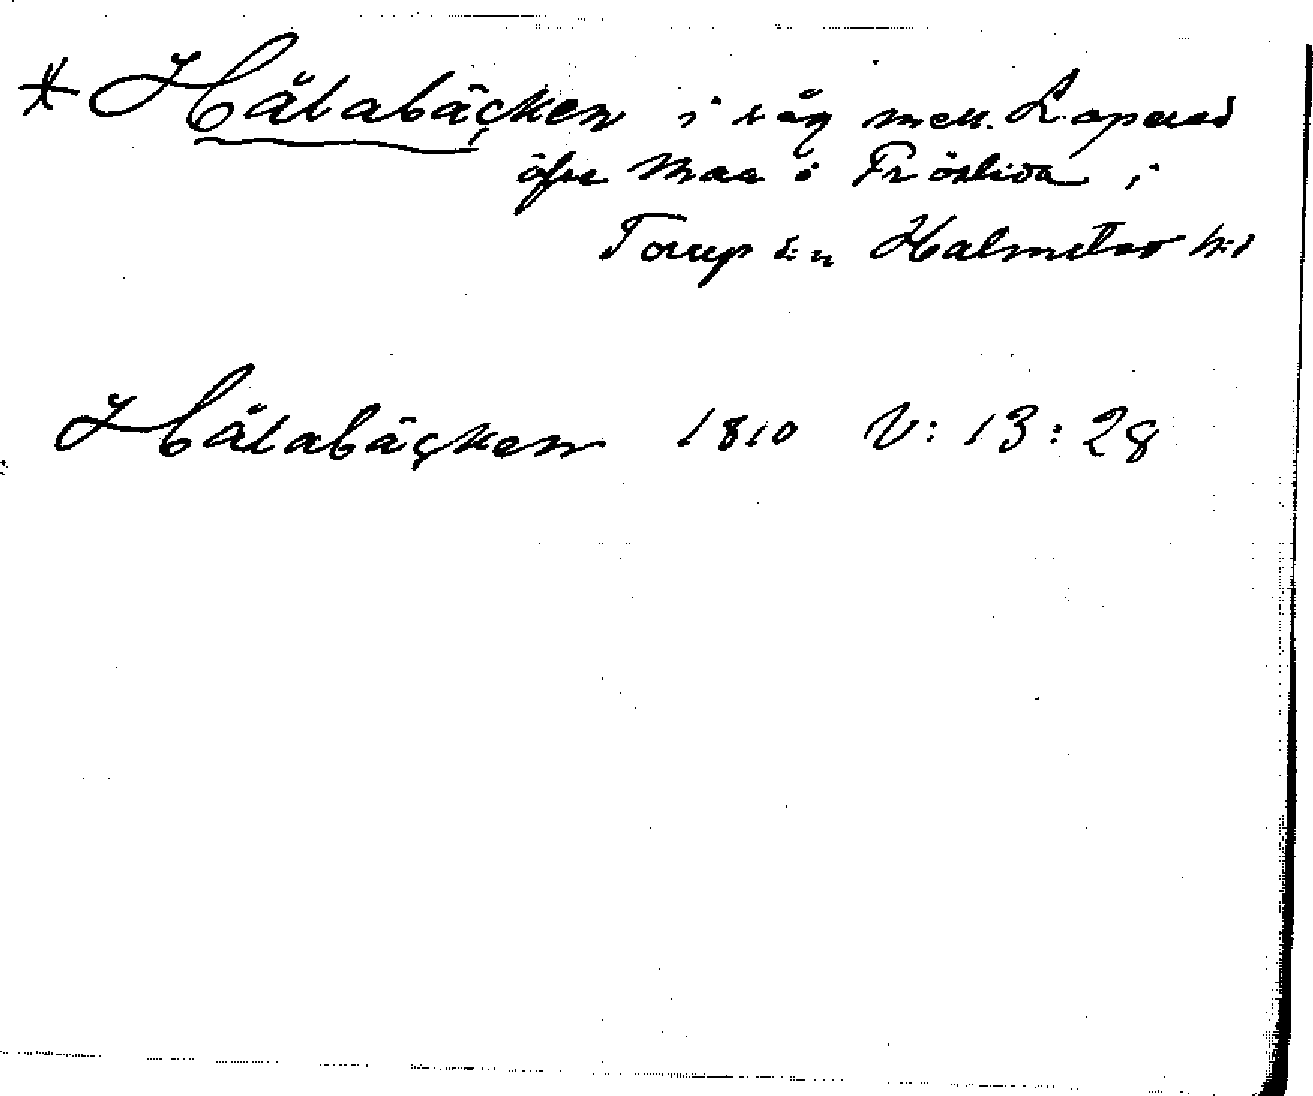 * Hälabäcken i väg mell. Laxered
öfre Maa i Fröslida i
Torup sn Halmstad hd
Hälabäcken 1810 V: 13: 28